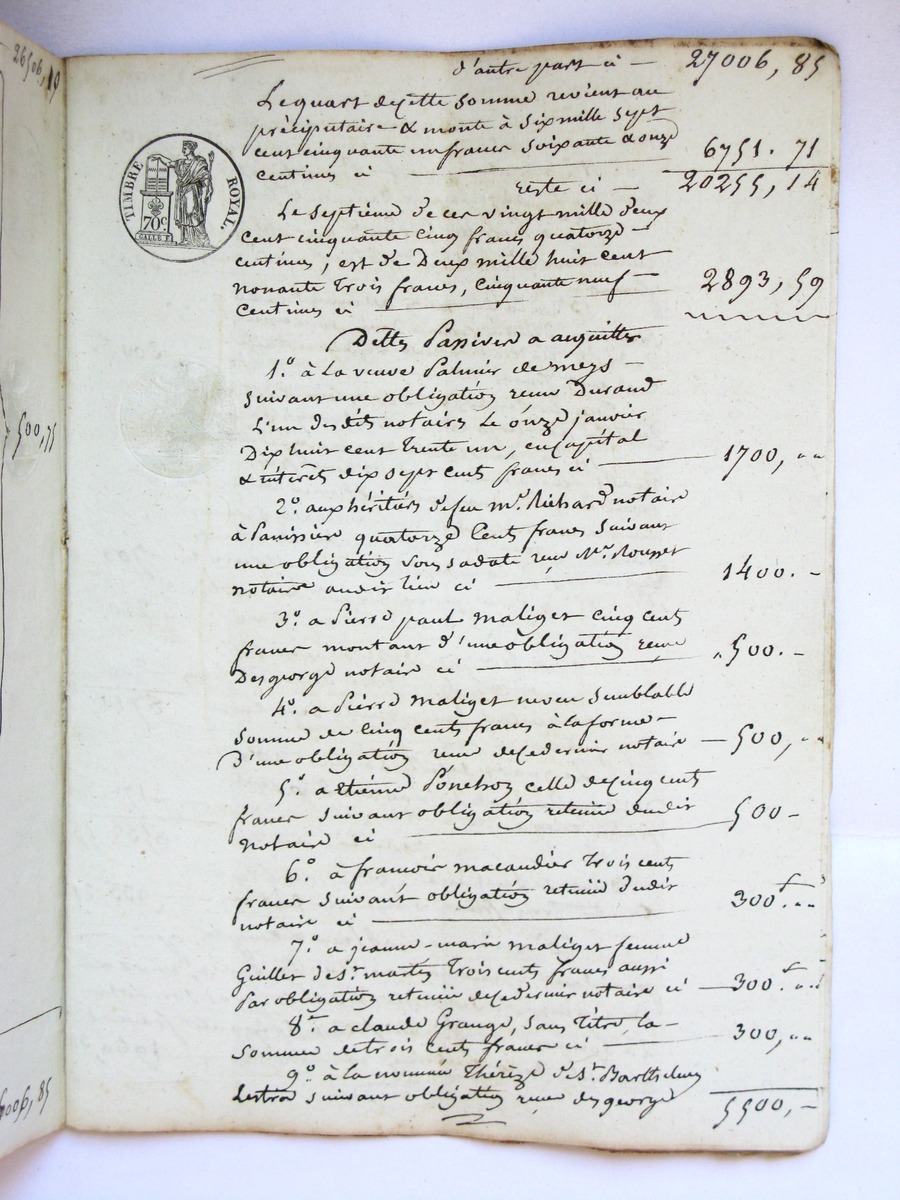 26506, 19
d'autre part ci — 27006, 85
Le quart de cette somme revient au
préciputaire & monte à six mille sept
cent cinquante un francs soixante & onze
centimes ci — 6751. 71
reste ci — 20255, 14
TIMBRE ROYAL.
70c.
Le septième de ces vingt mille deux
cent cinquante cinq francs quatorze —
centimes, est de Deux mille huit cent
nonante trois francs, cinquante neuf —
centimes ci — 2893, 59
Dettes Passives a acquitter
1.° à La veuve Palmier de meys —
suivant une obligation reçue Durand
L'un desdits notaires Le onze janvier
Dix huit cent trente un, en capital
& intérêts dix sept cents francs ci — 1700, "
500, 75
2.° aux héritiers de feu mr. Richard notaire
à Panissière quatorze Cent francs suivant
une obligation sous sa date reçu Mr. Rousset
notaire audit lieu ci — 1400. —
3.° a Pierre paul maliget cinq cents
francs montant d'une obligation reçue
Desgeorge notaire ci — 500. —
4.° a Pierre maliget neveu semblable
somme de cinq cents francs à la forme —
D'une obligation reçue de ce dernier notaire — 500, "
5.° a etienne Ponchon celle de cinq cents
francs suivant obligation retenue dudit
notaire ci — 500 —
6.° à francois macaudier trois cents
francs suivant obligation retenüe dudit
notaire ci — 300.f "
7.° a jeanne-marie maliget femme
Guillet de St. martin trois cents francs aussi
Par obligation retenüe de ce dernier notaire ci — 300.f "
8.° a claude Grange, sans titre, la —
somme de trois cents francs ci — 300, "
9.° à la nommée Thérèze de St. Barthelemy
Lestra suivant obligation reçue desgeorge
5500, —
27006, 85